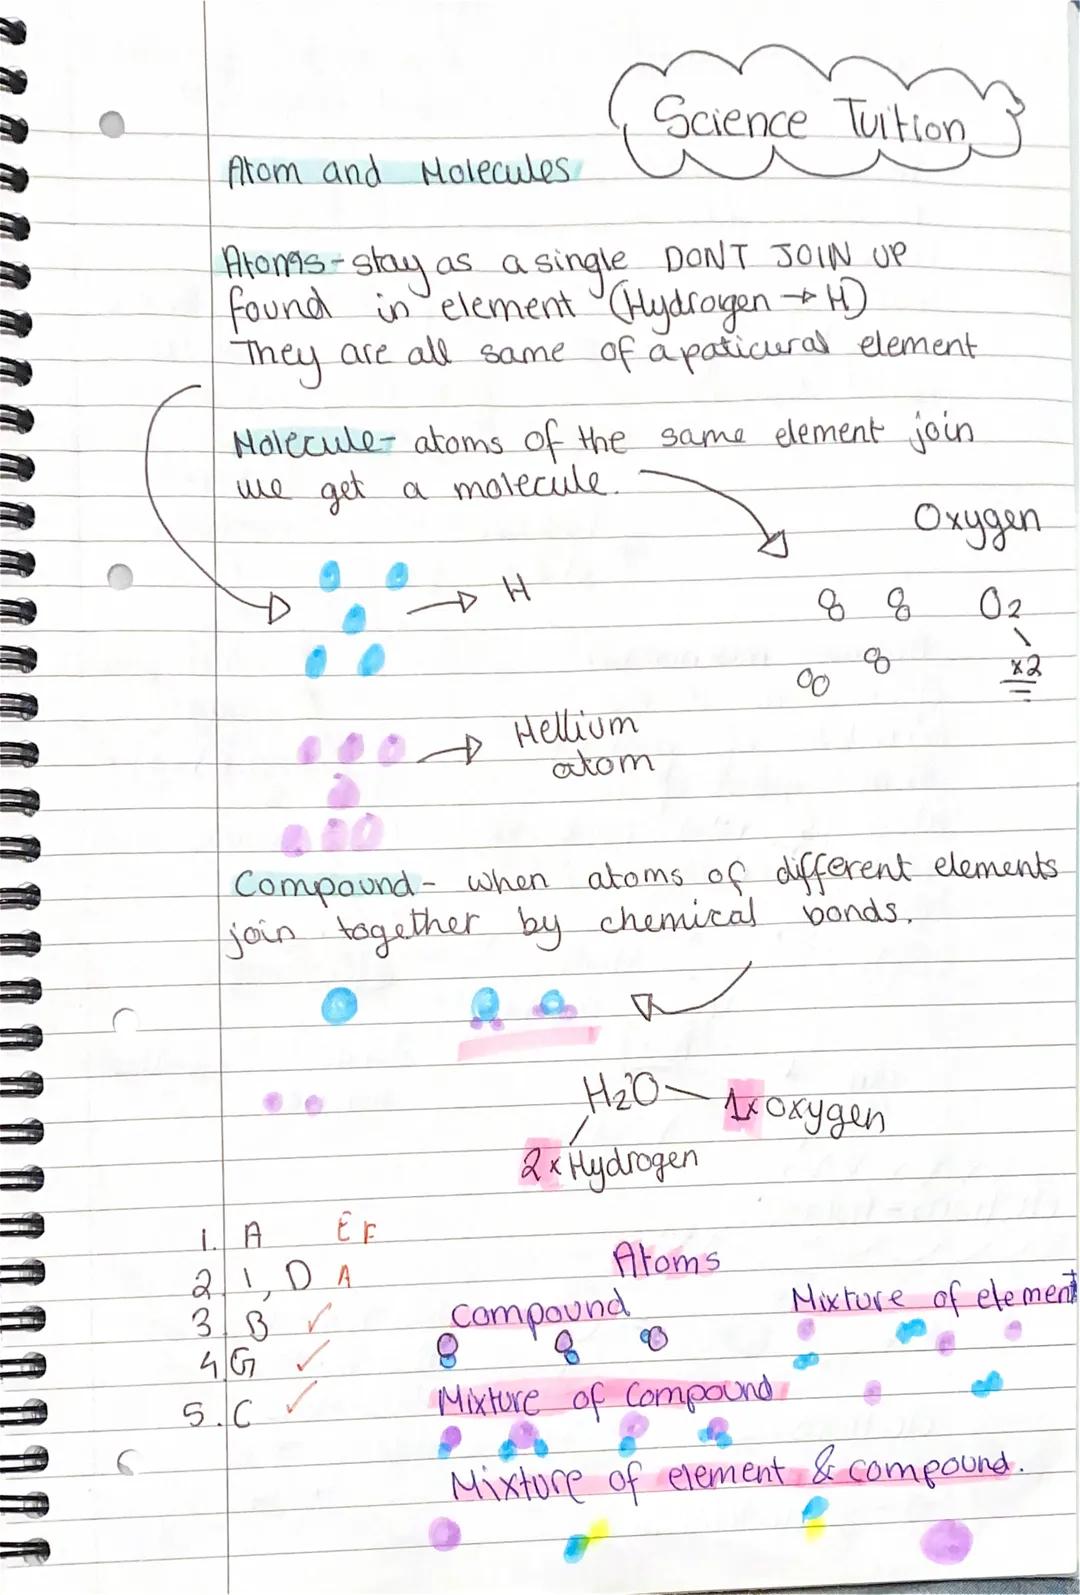 Science Tuition
Atom and Molecules
Atoms - stay as a single DONT JOIN UP
found in element (Hydrogen → H)
They are all same of a paticural element
Molecule - atoms of the same element join
we get a molecule.
Oxygen
→ H
O2
x2
→ Hellium
atom
Compound - when atoms of different elements
join together by chemical bonds.
H2O - 1x oxygen
2 x Hydrogen
1. A E F
2 1, D A
3. B ✓
4 G ✓
5. C ✓
Atoms
compound
Mixture of element
Mixture of Compound
Mixture of element & compound.